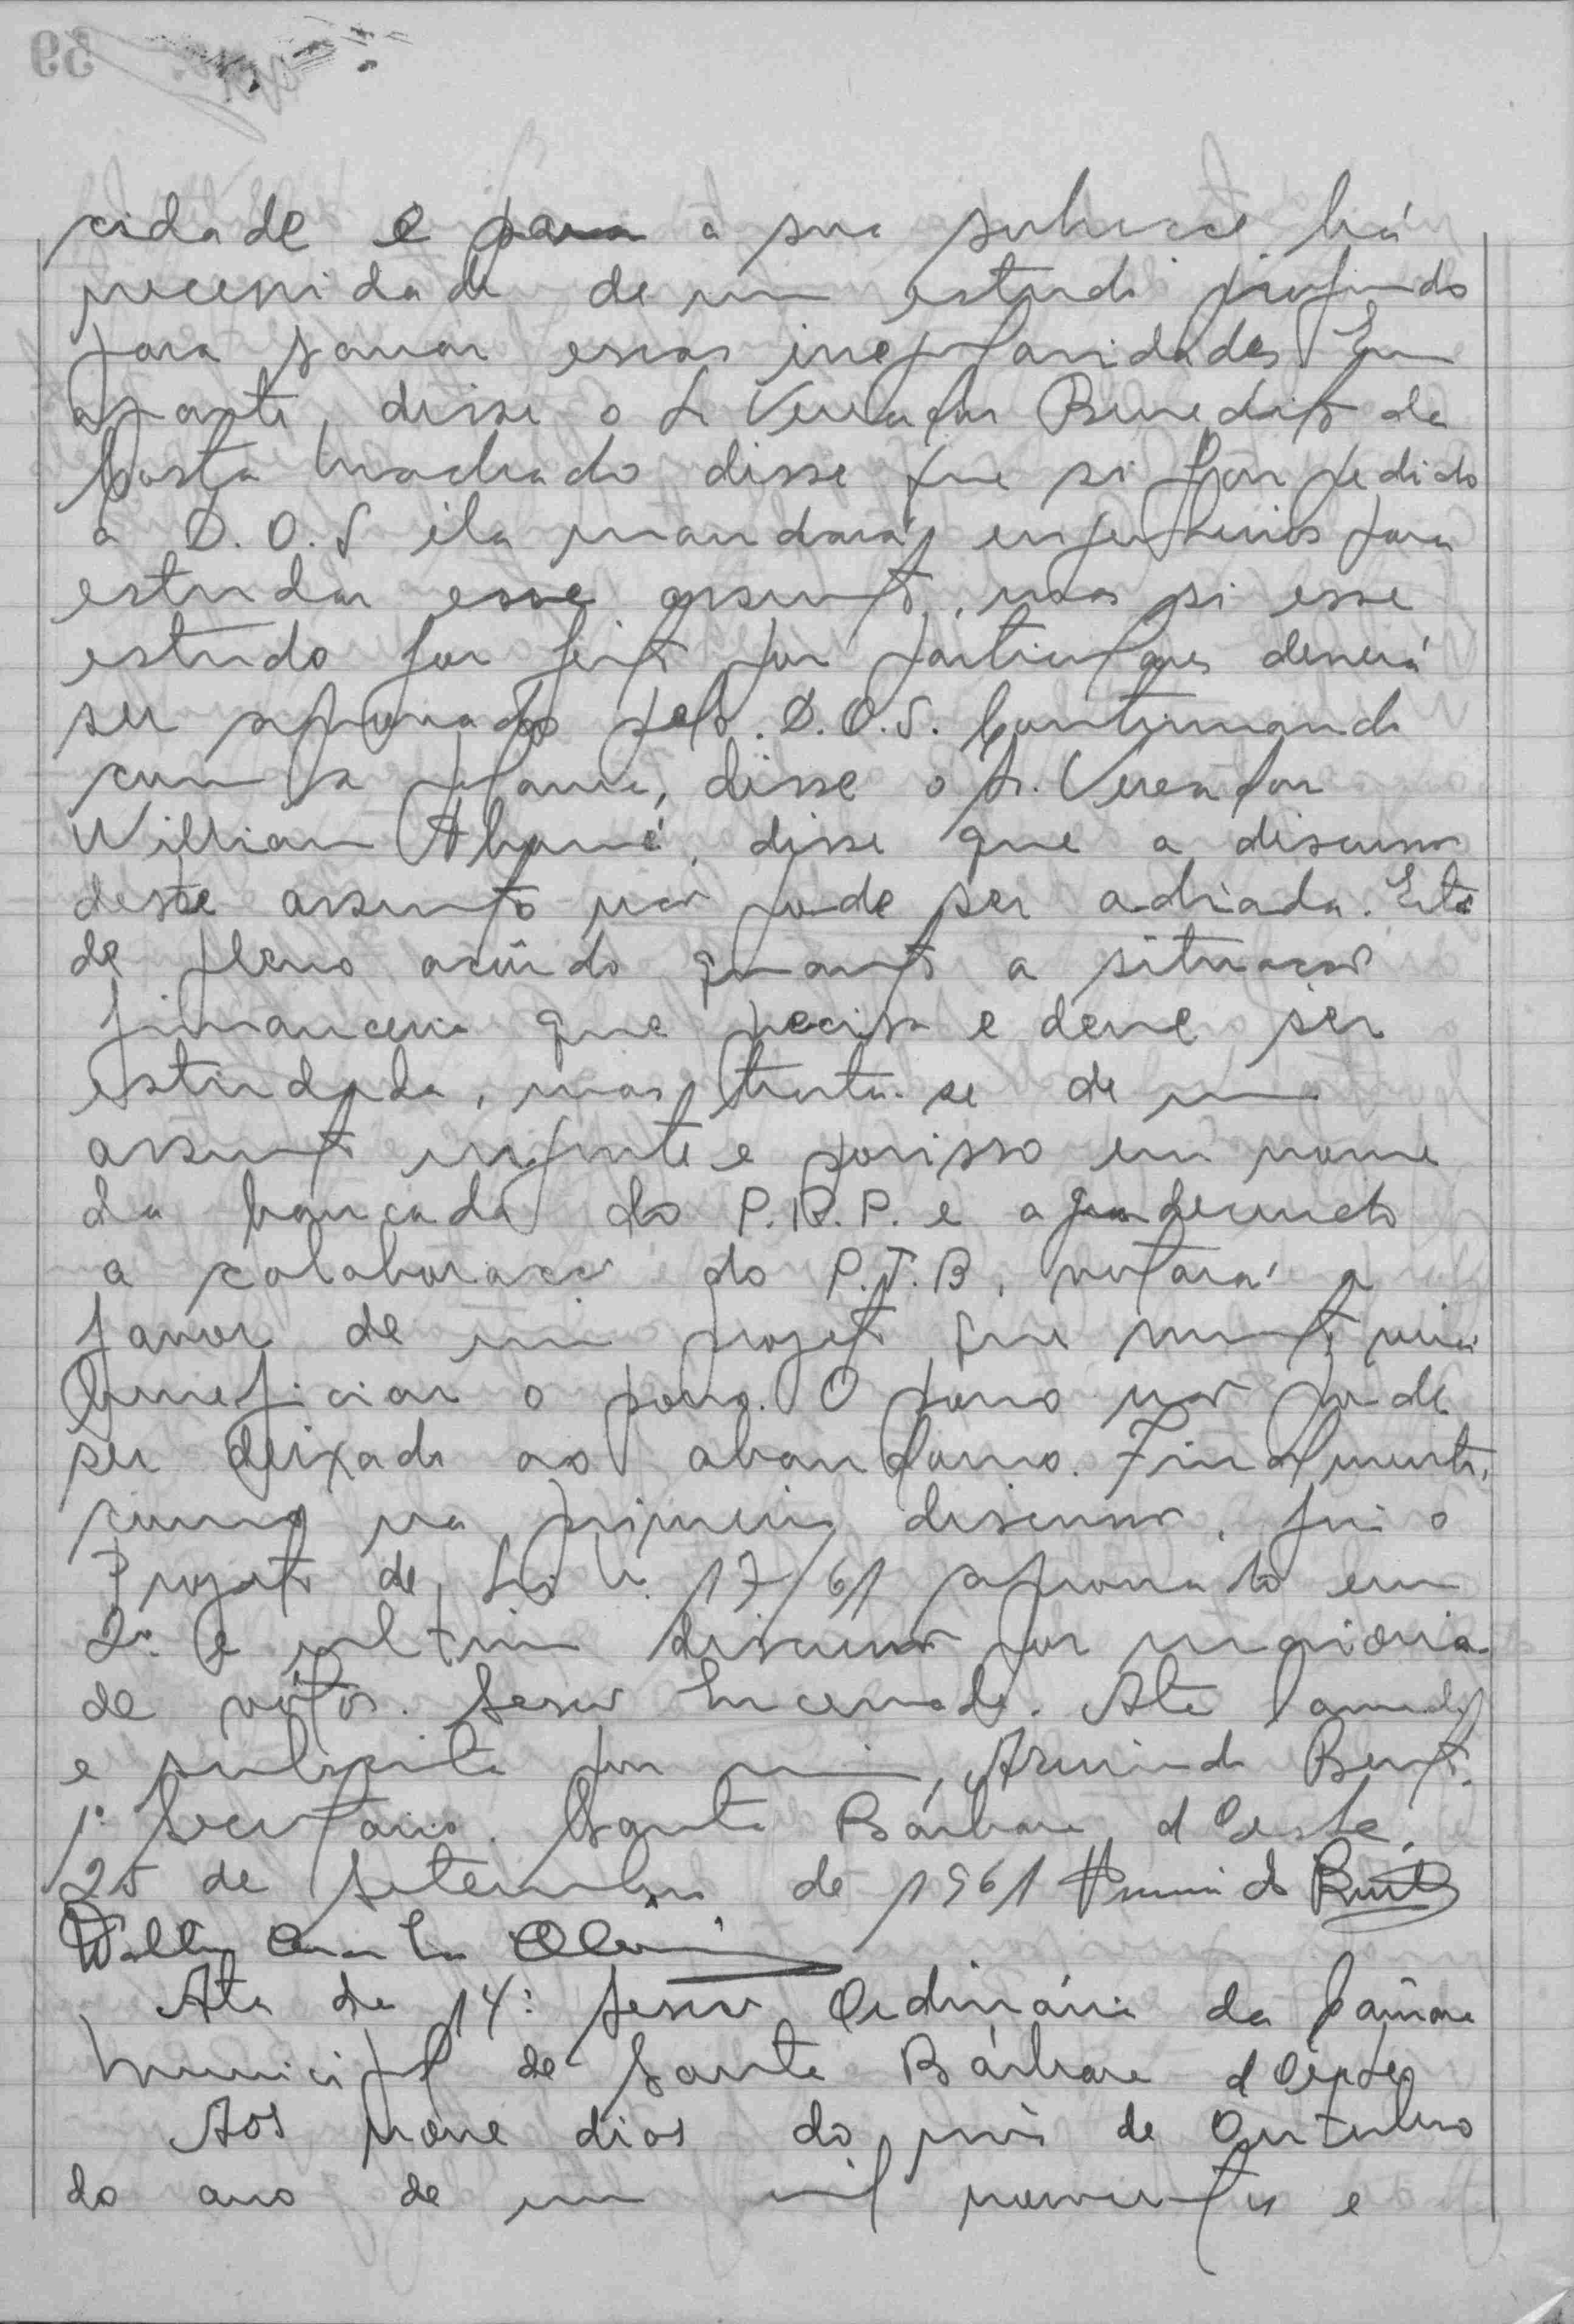 cidade e para a sua solucao há
necessidade de um estudo profundo
para sanar essas irregularidades. Em
aparte, disse o Sr Vereador Benedito da
Costa Machado disse que si for pedido
a D.O.S ela mandará engenheiros para
estudar esse assunto, mas si esse
estudo for feito por particulares deverá
ser aprovado pelo D.O.S. Continuando
com a palavra, disse o Sr. Vereador
William disse que a discussão
deste assunto não pode ser adiada. Está
de pleno acôrdo quanto a situação
financeira que precisa e deve ser
estudada, mas trata-se de um
assunto urgente e porisso em nome
da bancada do P.R.P. e agradecendo
a colaboração do P.T.B, votará a
favor de um projeto que muito virá
beneficiar o povo. O povo não pode
ser deixado ao abandono. Finalmente,
como na primeira discussão, foi o
Projeto de Lei n. 17/61 aprovado em
2ª e ultima discussão por maioria
de votos. Sessão Encerrada. Ata lavrada
e subscrita por mim, Armindo Bento.
1º Secretario. Santa Bárbara d'Oeste,
25 de Setembro de 1961 Armindo Bento
Ata da 14ª Sessão Ordinária da Câmara
Municipal de Santa Bárbara d'Oeste
Aos nove dias do mês de Outubro
do ano de um mil novecentos e